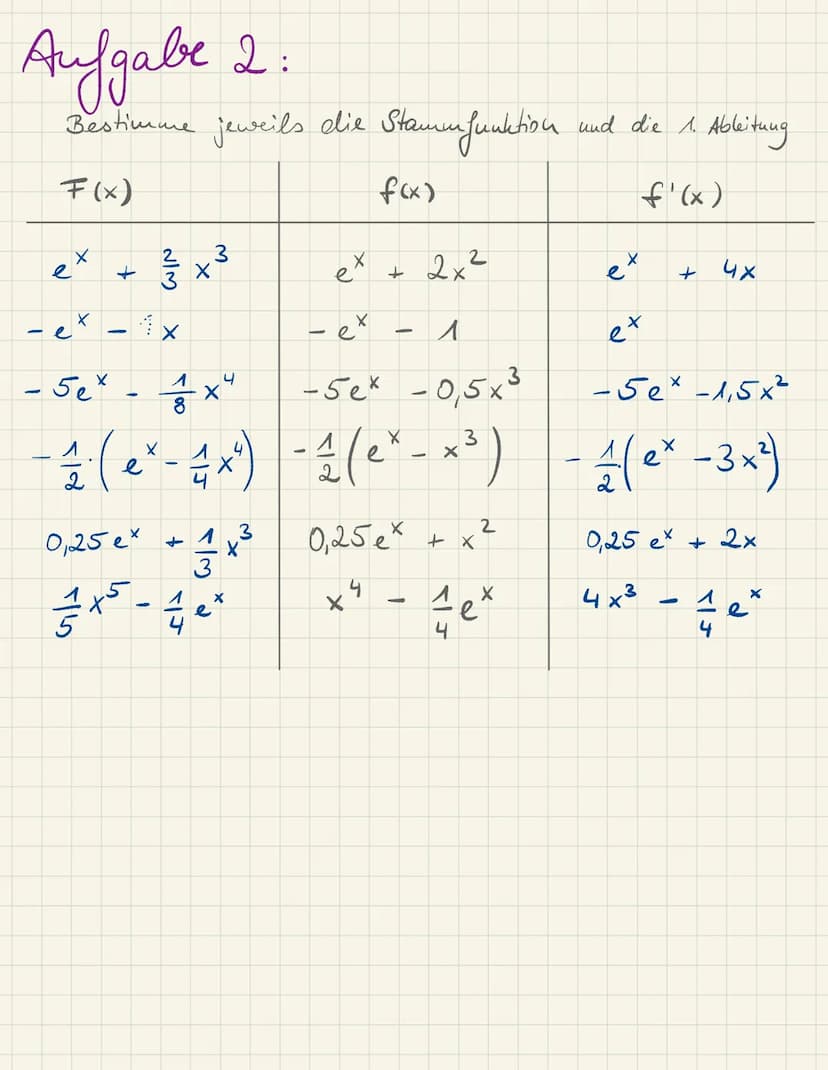 Aufgabe 2:
Bestimme jeweils die Stammfunktion und die 1. Ableitung
F(x) f(x) f'(x)
e^x + 2/3 x^3 e^x + 2x^2 e^x + 4x
-e^x - x -e^x - 1 e^x
-5e^x - 1/8 x^4 -5e^x - 0,5x^3 -5e^x - 1,5x^2
-1/2·(e^x - 1/4 x^4) -1/2(e^x - x^3) -1/2(e^x - 3x^2)
0,25e^x + 1/3 x^3 0,25e^x + x^2 0,25 e^x + 2x
1/5 x^5 - 1/4 e^x x^4 - 1/4 e^x 4x^3 - 1/4 e^x